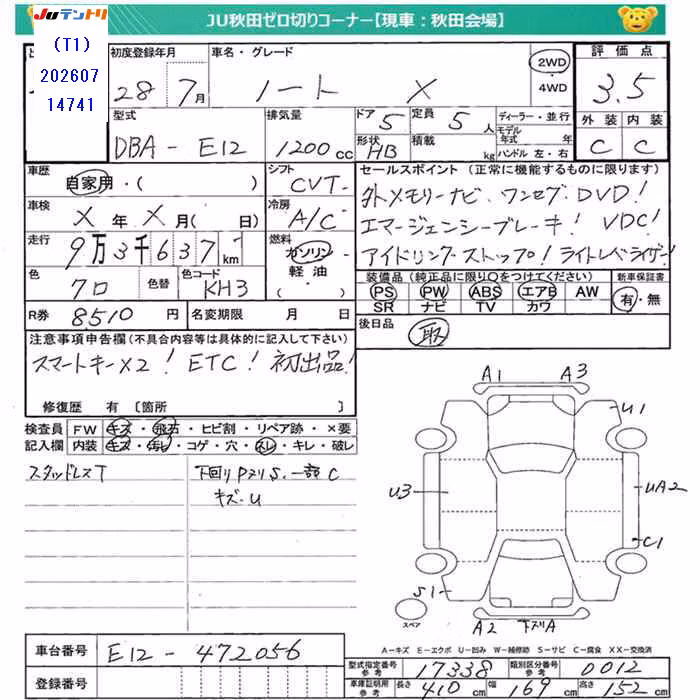 JUテントリ
JU秋田ゼロ切りコーナー【現車：秋田会場】
(T1)
202607
14741
初度登録年月
28年 7月
車名・グレード
ノート X
2WD
・4WD
評価点
3.5
外装 内装
C C
型式
DBA-E12
排気量
1200cc
ドア 5
定員 5人
形状 HB
積載 kg
ディーラー・並行
モデル年式 年
ハンドル 左・右
車歴
自家用・( )
シフト
CVT
車検
X年X月( 日)
冷房
A/C
走行
9万3千637km
燃料
ガソリン・
軽油・
( )
色
クロ
色替
色コード
KH3
R券 8510円
名変期限 月 日
セールスポイント (正常に機能するものに限ります)
外メモリーナビ、ワンセグ DVD!
エマージェンシーブレーキ! VDC!
アイドリングストップ! ライトレベライザー!
装備品(純正品に限り○をつけてください)
PS PW ABS エアB AW
SR ナビ TV カワ
新車保証書
有・無
後日品 取
注意事項申告欄(不具合内容等は具体的に記入して下さい)
スマートキーX2! ETC! 初出品!
修復歴 有 [箇所 ]
検査員 FW キズ・飛石・ヒビ割・リペア跡・×要
記入欄 内装 キズ・汚レ・コゲ・穴・スレ・キレ・破レ
スタッドレスT
下回りPズリS、一部C
キズ・U
A1 A3
U1
U3
UA2
C1
S1
スペア
A2 下ズリA
A－キズ E－エクボ U－凹み W－補修跡 S－サビ C－腐食 XX－交換済
車台番号 E12-472056
登録番号
型式指定番号 参考 17338
類別区分番号 参考 0012
車庫証明用 参考 長さ 410cm 幅 169cm 高さ 152cm